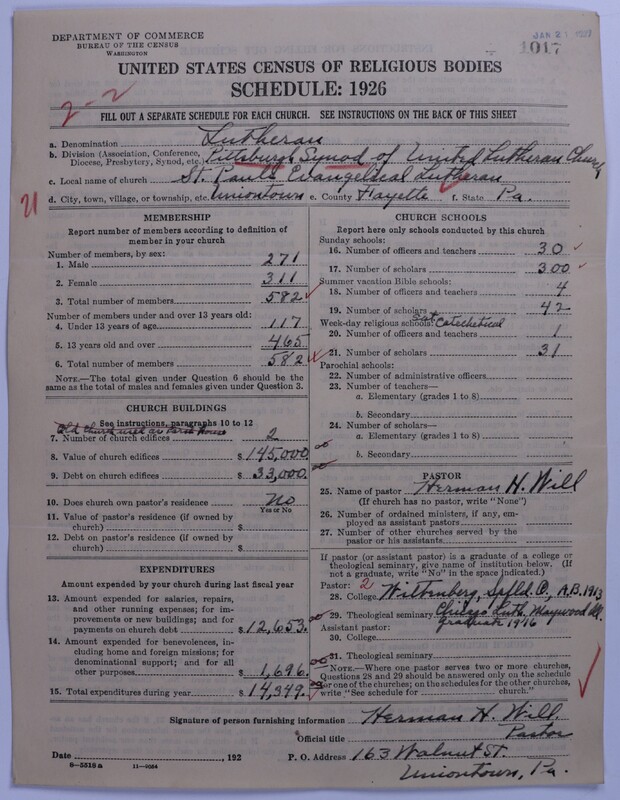 DEPARTMENT OF COMMERCE
BUREAU OF THE CENSUS
WASHINGTON
JAN 21 1927
1017
UNITED STATES CENSUS OF RELIGIOUS BODIES
SCHEDULE: 1926
2-2
FILL OUT A SEPARATE SCHEDULE FOR EACH CHURCH. SEE INSTRUCTIONS ON THE BACK OF THIS SHEET
a. Denomination Lutheran
b. Division (Association, Conference, Diocese, Presbytery, Synod, etc.) Pittsburgh Synod of United Lutheran Church
c. Local name of church St. Paul's Evangelical Lutheran
d. City, town, village, or township, etc. Uniontown e. County Fayette f. State Pa.
MEMBERSHIP
Report number of members according to definition of
member in your church
Number of members, by sex:
1. Male 271
2. Female 311
3. Total number of members 582
Number of members under and over 13 years old:
4. Under 13 years of age 117
5. 13 years old and over 465
6. Total number of members 582
NOTE.—The total given under Question 6 should be the
same as the total of males and females given under Question 3.
CHURCH BUILDINGS
See instructions, paragraphs 10 to 12
Old church used as Parish House
7. Number of church edifices 2
8. Value of church edifices $ 145,000.00
9. Debt on church edifices $ 33,000.00
10. Does church own pastor's residence No
Yes or No
11. Value of pastor's residence (if owned by
church) $
12. Debt on pastor's residence (if owned by
church) $
EXPENDITURES
Amount expended by your church during last fiscal year
13. Amount expended for salaries, repairs,
and other running expenses; for im-
provements or new buildings; and for
payments on church debt $ 12,653.00
14. Amount expended for benevolences, in-
cluding home and foreign missions; for
denominational support; and for all
other purposes $ 1,696.00
15. Total expenditures during year $ 14,349.00
CHURCH SCHOOLS
Report here only schools conducted by this church
Sunday schools:
16. Number of officers and teachers 30
17. Number of scholars 300
Summer vacation Bible schools:
18. Number of officers and teachers 4
19. Number of scholars 42
Week-day religious schools: Sat Catechetical
20. Number of officers and teachers 1
21. Number of scholars 31
Parochial schools:
22. Number of administrative officers
23. Number of teachers—
a. Elementary (grades 1 to 8)
b. Secondary
24. Number of scholars—
a. Elementary (grades 1 to 8)
b. Secondary
PASTOR
25. Name of pastor Herman H. Will
(If church has no pastor, write "None")
26. Number of ordained ministers, if any, em-
ployed as assistant pastors
27. Number of other churches served by the
pastor or his assistants
If pastor (or assistant pastor) is a graduate of a college or
theological seminary, give name of institution below. (If
not a graduate, write "No" in the space indicated.)
Pastor: 2
28. College Wittenberg, Spfld. O., A.B. 1913
29. Theological seminary Chicago Luth. Maywood Ill.
graduate 1916
Assistant pastor:
30. College
31. Theological seminary
NOTE.—Where one pastor serves two or more churches,
Questions 28 and 29 should be answered only on the schedule
for one of the churches; on the schedules for the other churches,
write "See schedule for church."
Signature of person furnishing information Herman H. Will
Official title Pastor
Date , 192
P. O. Address 163 Walnut St.
8—5518 a 11—9084
Uniontown, Pa.